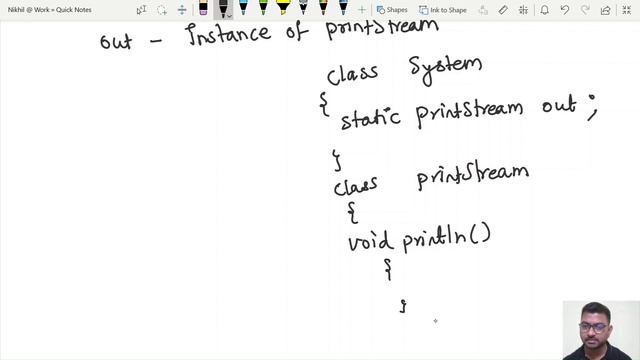 Nikhil @ Work » Quick Notes
Shapes
Ink to Shape
out - Instance of printStream
class System
{
static printStream out ;
}
class printStream
{
void println()
{
}